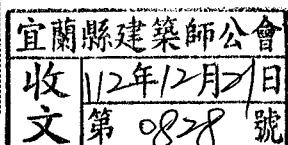 宜蘭縣建築師公會
收文
112年12月21日
第 0828 號